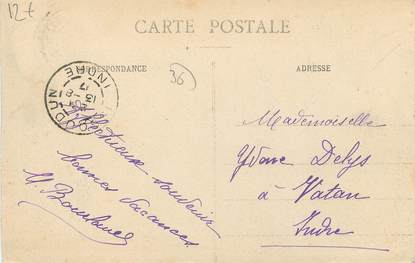 12+
CARTE POSTALE
CORRESPONDANCE
ADRESSE
36
INDRE
Affectueux souvenir
bonnes vacances
Mademoiselle
Yvone Delys
à Vatan
Indre